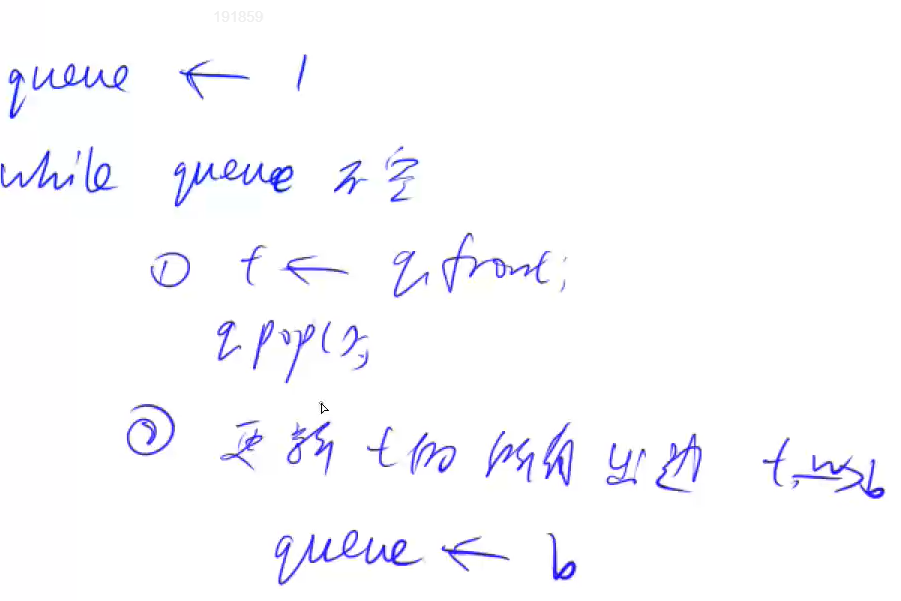 191859
queue ← 1
while queue 不空
① t ← q.front;
q.pop();
② 更新 t 的所有出边 t, w→b
queue ← b